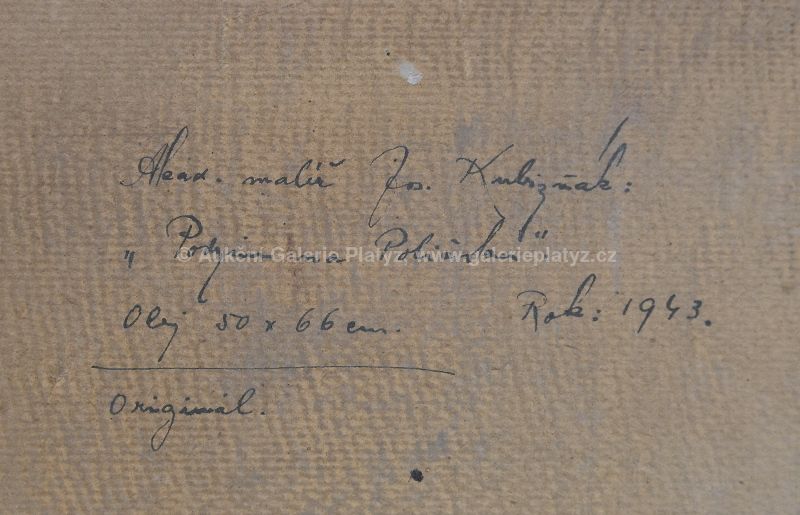 Akad. malíř Jos. Kubizňák:
„Podzim na
© Aukční Galerie Platýz, www.galerieplatyz.cz
Olej 50 x 66 cm. Rok: 1943.
Originál.